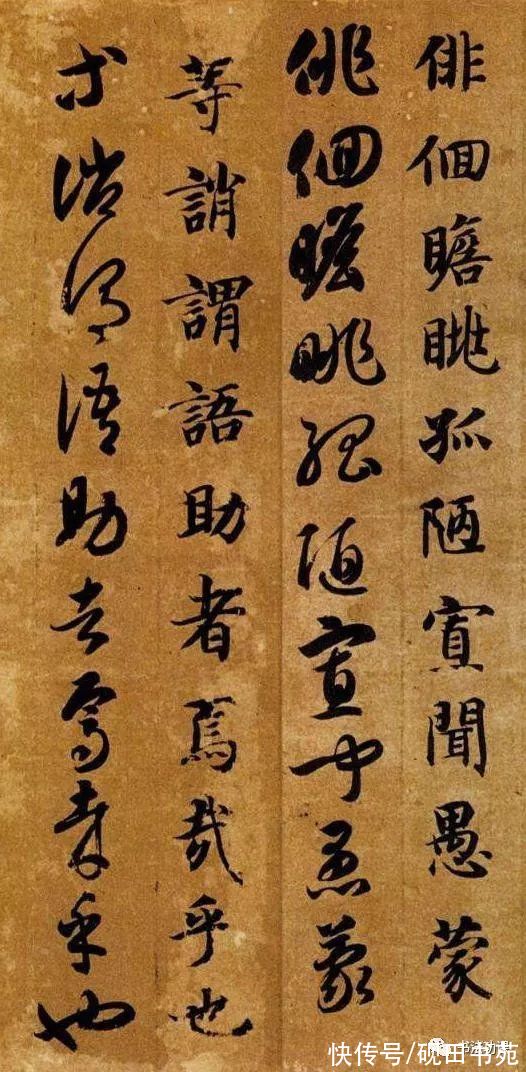 俳佪瞻眺孤陋寡聞愚蒙
俳佪瞻眺孤陋寡聞愚蒙
等誚謂語助者焉哉乎也
等誚謂語助者焉哉乎也
快传号/砚田书苑